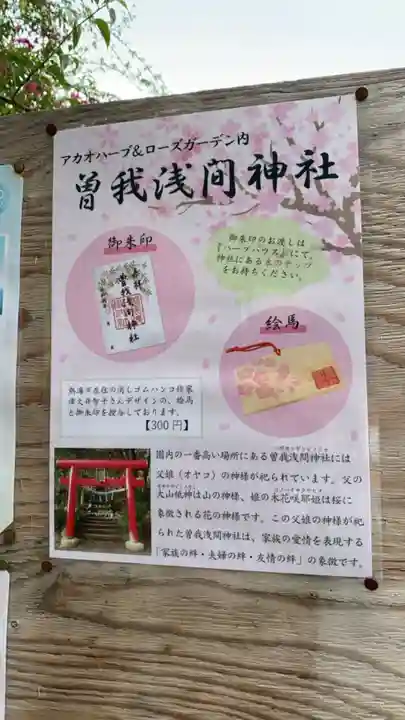 アカオハーブ&ローズガーデン内
曽我浅間神社
御朱印
奉拝
曽我浅間神社
御朱印のお渡しは
『ハーブハウス』にて、
神社にある木のチップ
をお持ちください。
絵馬
熱海市在住の消しゴムハンコ作家
津久井智子さんデザインの、絵馬
と御朱印を授与しております。
【300円】
園内の一番高い場所にある曽我浅間神社には
父娘（オヤコ）の神様が祀られています。父の
大山祇神は山の神様、娘の木花咲耶姫は桜に
象徴される花の神様です。この父娘の神様が祀
られた曽我浅間神社は、家族の愛情を表現する
「家族の絆・夫婦の絆・友情の絆」の象徴です。